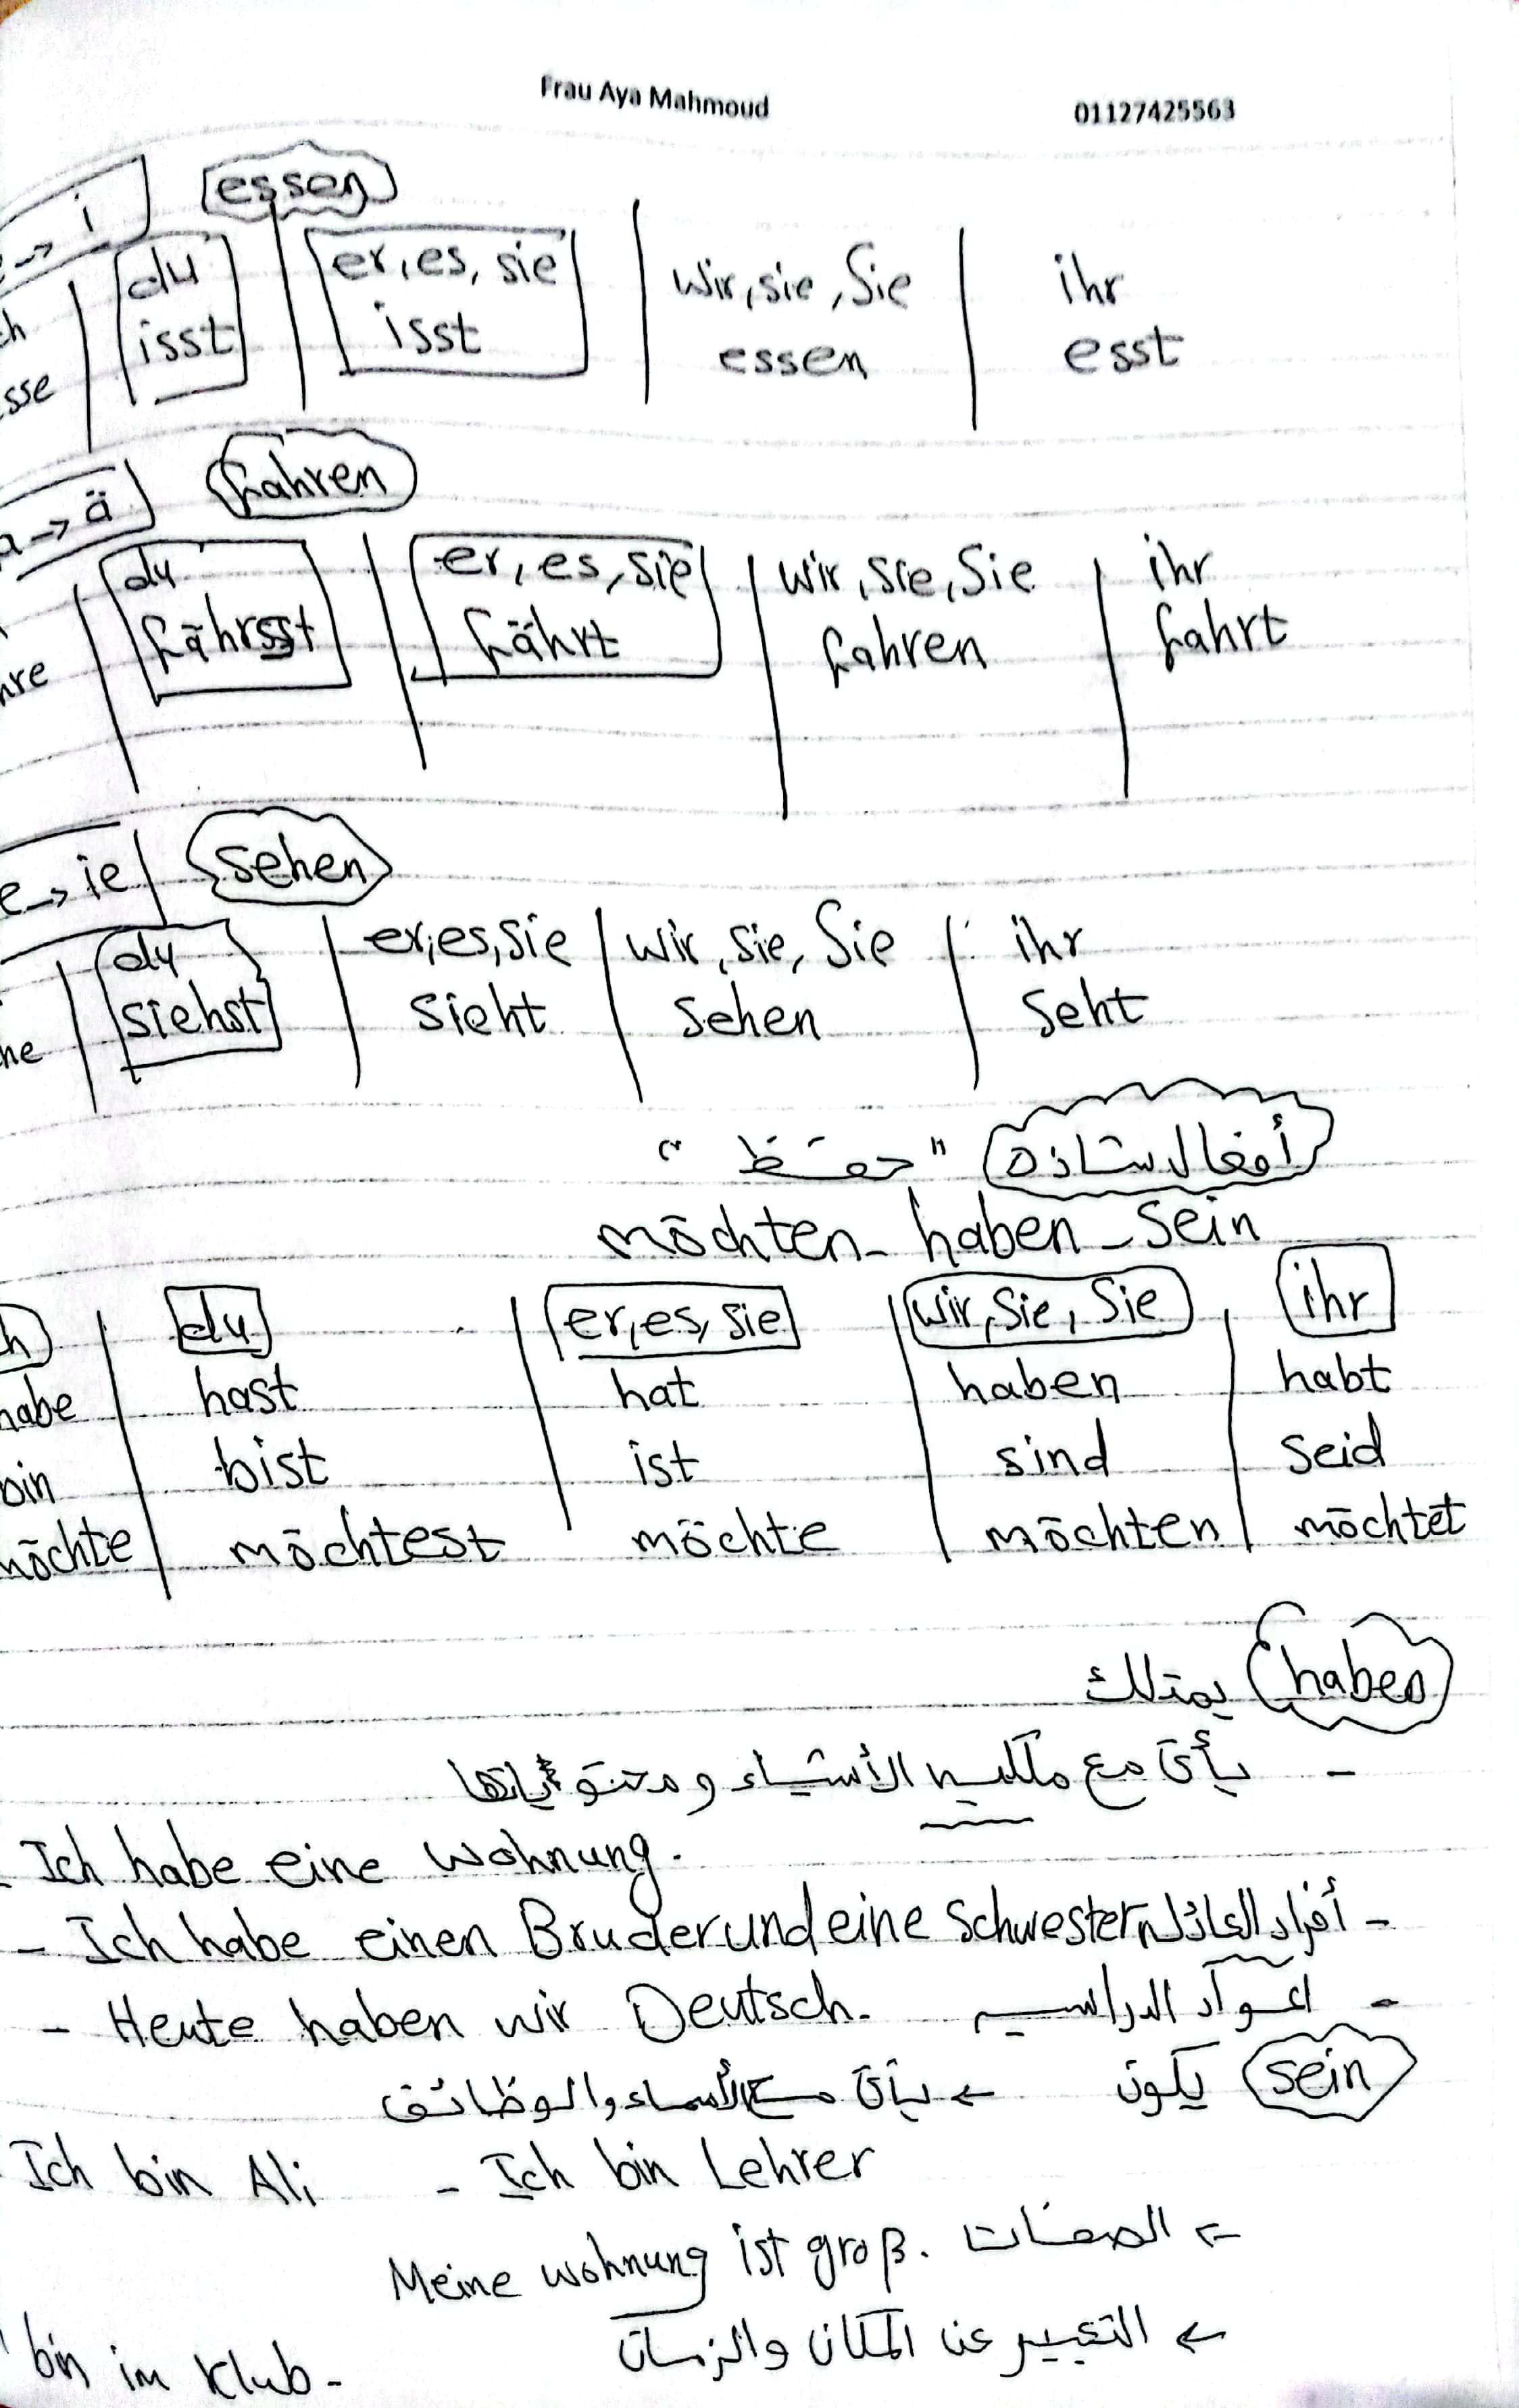 Frau Aya Mahmoud 01127425563
e → i essen
ch du er, es, sie wir, sie, Sie ihr
sse isst isst essen esst
a → ä fahren
du er, es, sie wir, sie, Sie ihr
hre fährsst fährt fahren fahrt
e → ie sehen
du er, es, sie wir, sie, Sie ihr
he siehst sieht sehen seht
أفعال شاذه "حفظ"
möchten - haben - sein
h du er, es, sie wir, sie, Sie ihr
habe hast hat haben habt
bin bist ist sind seid
möchte möchtest möchte möchten möchtet
haben يمتلك
- يأتى مع ملكيه الأشياء ومحتوياتها
- Ich habe eine Wohnung.
- Ich habe einen Bruder und eine Schwester. أفراد العائله -
- Heute haben wir Deutsch. المواد الدراسيه -
sein يكون ← يأتى مع الأسماء والوظائف
Ich bin Ali - Ich bin Lehrer
Meine wohnung ist groß. الصفات ←
← التعبير عن المكان والزمان
bin im Klub -